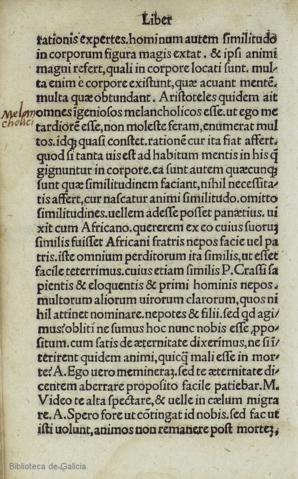 Liber
rationis expertes. hominum autem similitudo
in corporum figura magis extat. & ipsi animi
magni refert, quali in corpore locati sunt. mul-
ta enim è corpore existunt, quæ acuant mentẽ.
multa quæ obtundant. Aristoteles quidem ait
Melan
cholici
omnes ĩgeniosos melancholicos esse. ut ego me
tardiorẽ esse, non moleste feram, enumerat mul
tos. idqꝫ quasi constet. rationẽ cur ita fiat affert.
quod si tanta uis est ad habitum mentis in his q̃
gignuntur in corpore. ea sunt autem quæcunqꝫ
sunt quæ similitudinem faciant, nihil necessita-
tis affert, cur nascatur animi similitudo. omitto
similitudines. uellem adesse posset panætius. ui
xit cum Africano. quererem ex eo cuius suorũ
similis fuisset Africani fratris nepos facie uel pa
tris. iste omnium perditorum ita similis, ut esset
facile teterrimus. cuius etiam similis P. Crassi sa
pientis & eloquentis & primi hominis nepos.
multorum aliorum uirorum clarorum, quos ni
hil attinet nominare. nepotes & filii. sed qd agi-
mus? obliti ne sumus hoc nunc nobis esse ꝓpo-
situm. cum satis de æternitate dixerimus, ne si ĩ
terirent quidem animi, quicq̃ mali esse in mor-
te? A. Ego uero memineraʒ. sed te æternitate di-
centem aberrare proposito facile patiebar. M.
Video te alta spectare, & uelle in cælum migra
re. A. Spero fore ut cõtingat id nobis. sed fac ut
isti uolunt, animos non remanere post morteʒ,
Biblioteca de Galicia